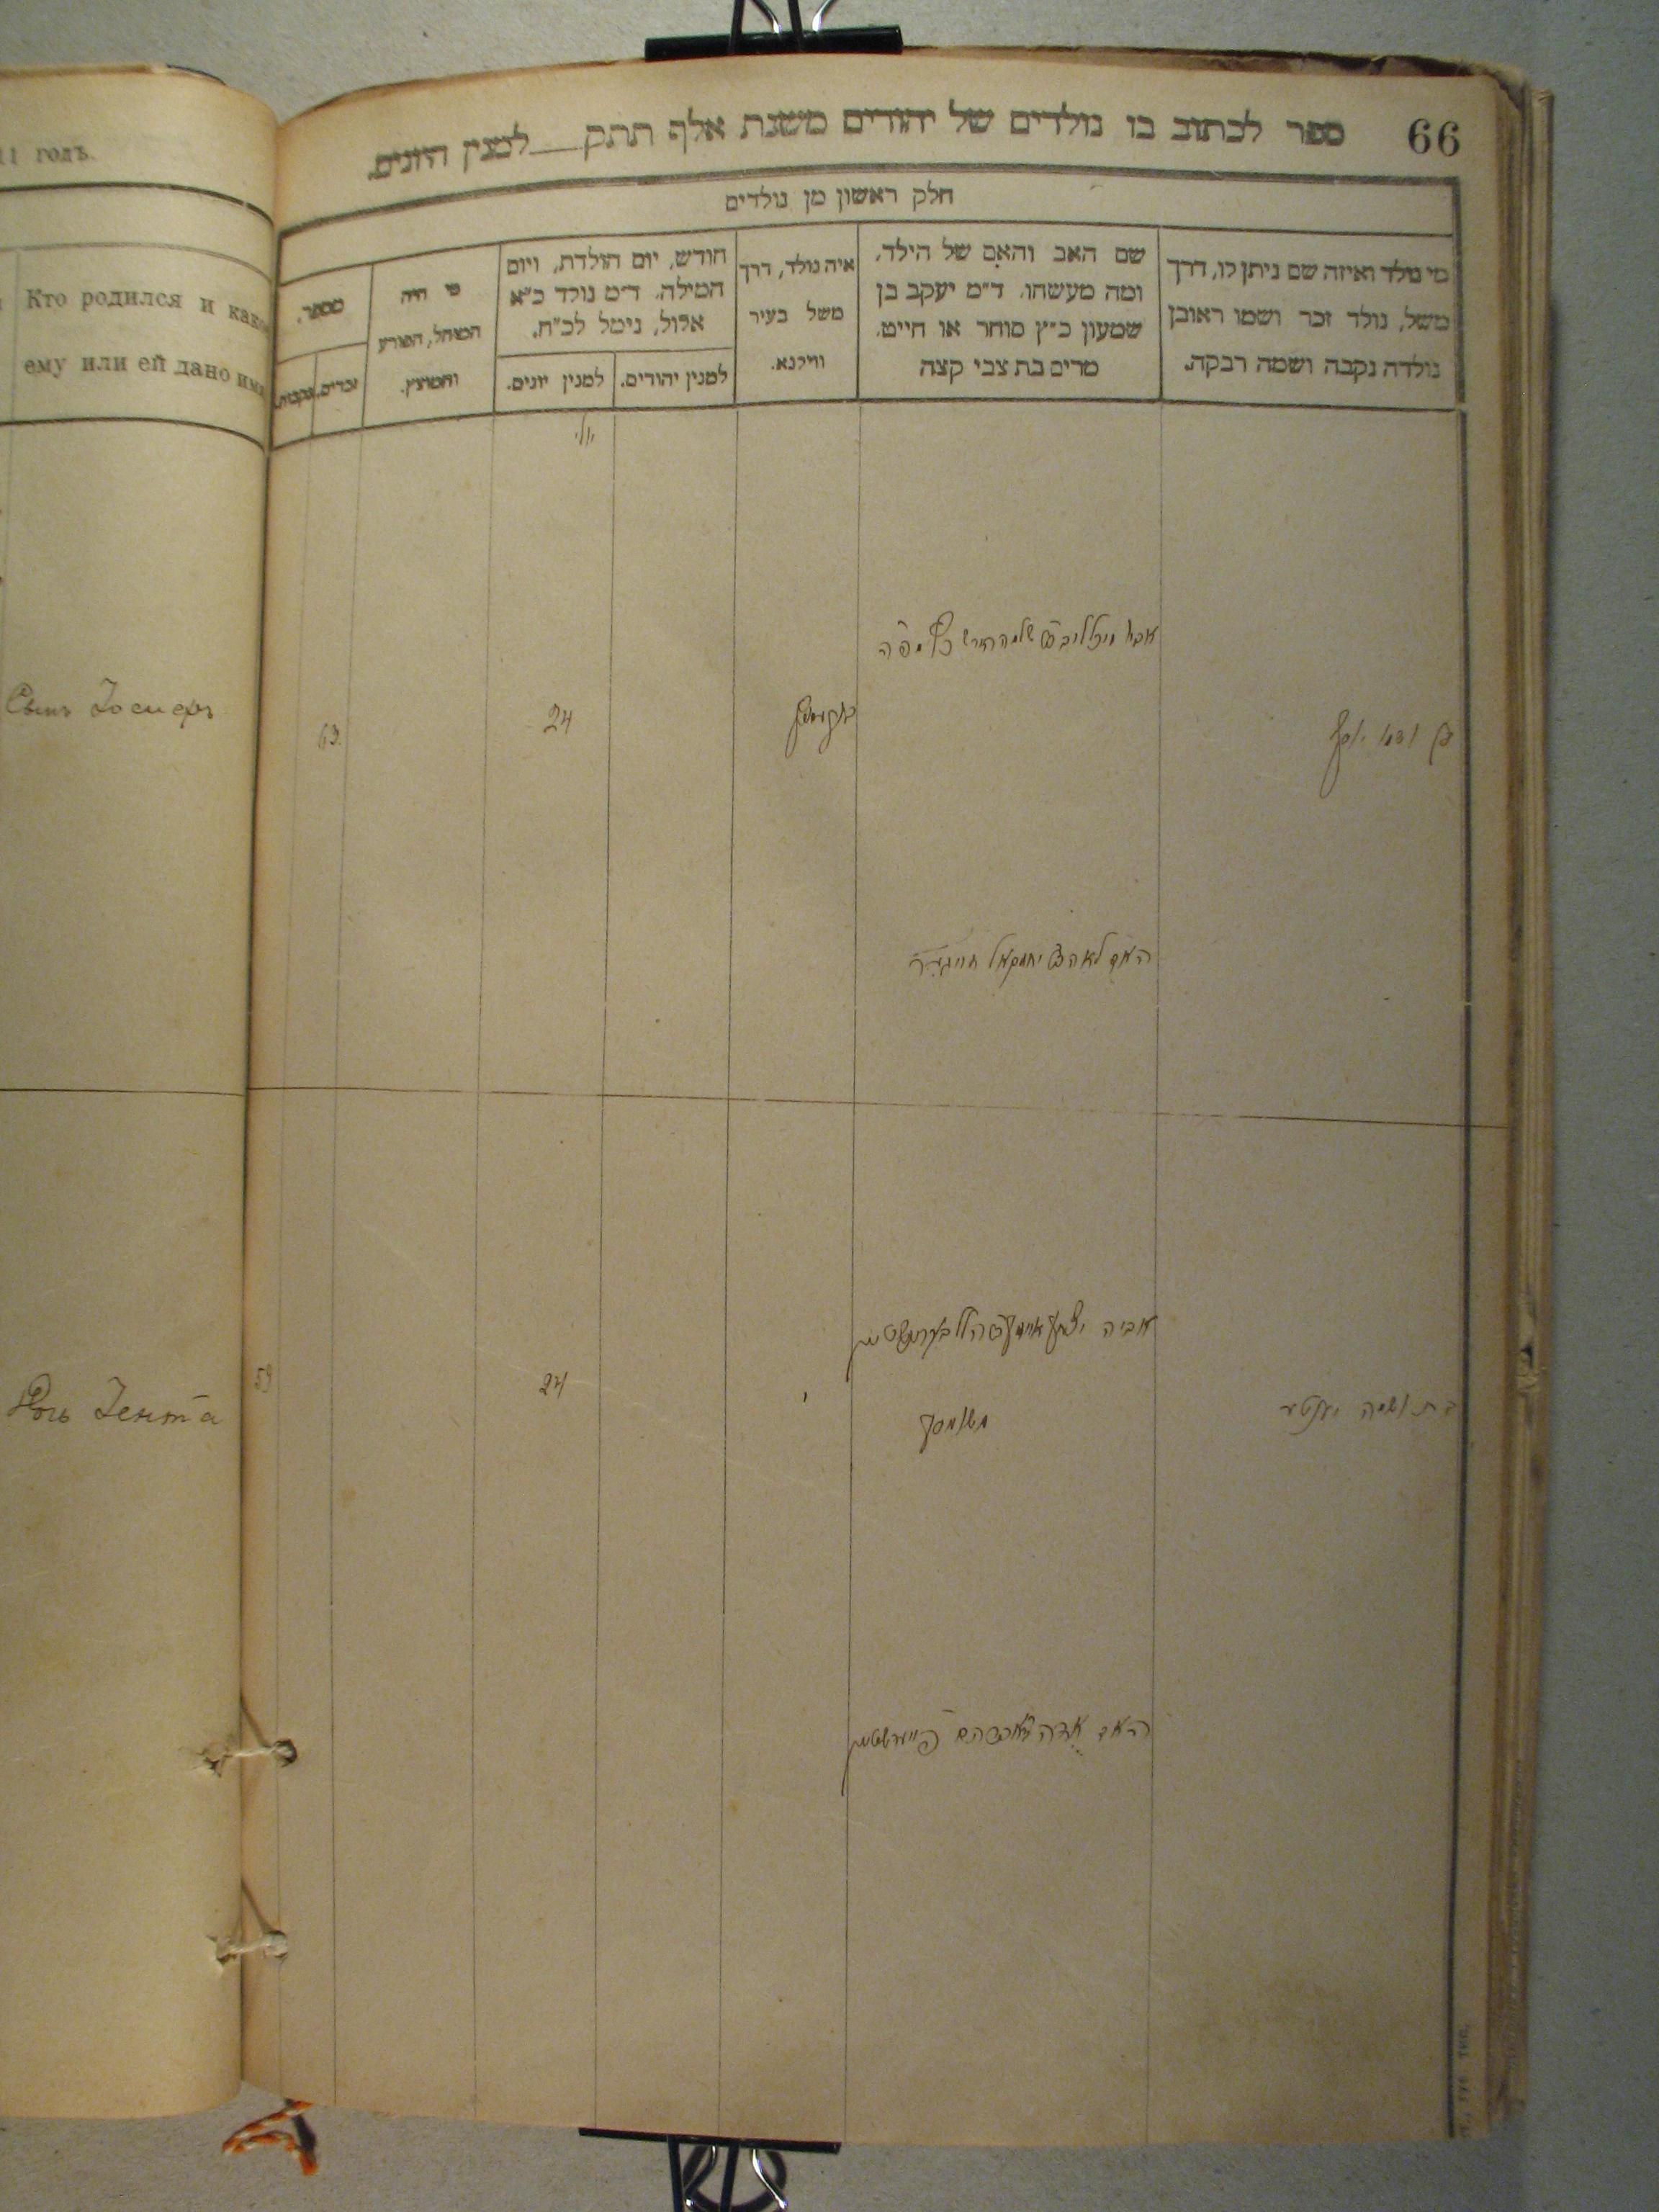 11 годъ.
Кто родился и како
ему или ей дано имя
Сынъ Іосифъ
Дочь Іента
66
ספר לכתוב בו נולדים של יהודים משנת אלף תתק__למנין היונים.
חלק ראשון מן נולדים
מי נולד ואיזה שם ניתן לו, דרך
משל, נולד זכר ושמו ראובן
נולדה נקבה ושמה רבקה.
שם האב והאם של הילד,
ומה מעשהו. ד״מ יעקב בן
שמעון כ״ץ סוחר או חייט.
מרים בת צבי קצה
איה נולד, דרך
משל בעיר
ווילנא.
חודש, יום הולדת, ויום
המילה. ד״מ נולד כ״א
אלול, נימל לכ״ח.
למנין יהודים.
למנין יונים.
מי היה
המוהל, הפורע
והמוצץ.
מספר.
זכרים.
נקבות.
יולי
בן ושמו יוסף
24
63
האם לאה בת יחזקאל
בת ושמה יענטא
אביה יצחק אייזיק
24
59
האם